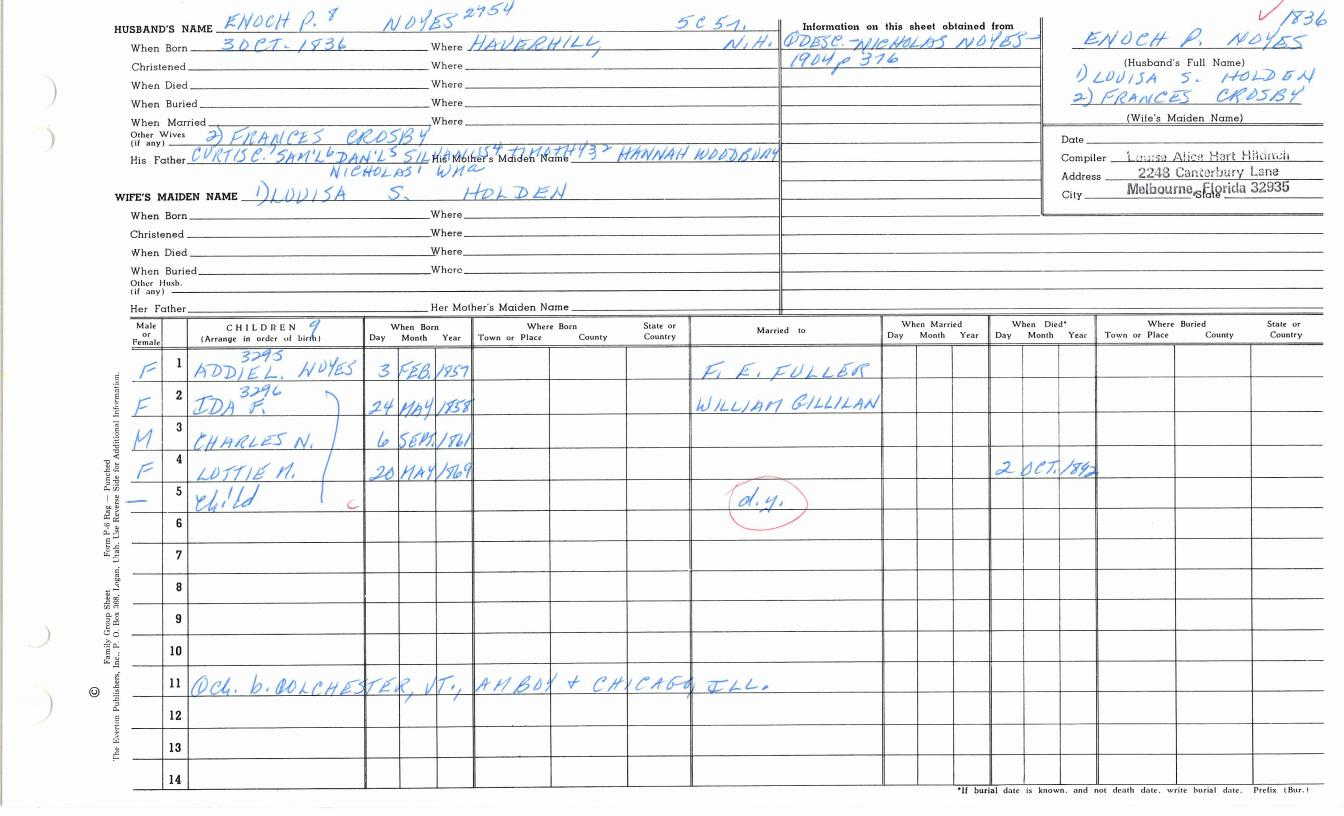 HUSBAND'S NAME ENOCH P. 8 NOYES 2754 5 C 5 7.
When Born 3 OCT. 1836 Where HAVERHILL, N.H.
Christened Where
When Died Where
When Buried Where
When Married Where
Other Wives (if any) 2) FRANCES CROSBY
His Father CURTIS C. 7 SAM'L 6 DAN'L 5 TIMOTHY 3 2 His Mother's Maiden Name HANNAH WOODBURY
NICHOLAS 1 Wm a
WIFE'S MAIDEN NAME 1) LOUISA S. HOLDEN
When Born Where
Christened Where
When Died Where
When Buried Where
Other Husb. (if any)
Her Father Her Mother's Maiden Name
Information on this sheet obtained from
① DESC. NICHOLAS NOYES -
1904 p 376
✓ 1836
ENOCH P. NOYES
(Husband's Full Name)
1) LOUISA S. HOLDEN
2) FRANCES CROSBY
(Wife's Maiden Name)
Date
Compiler Louise Alice Hart Hildreth
Address 2248 Canterbury Lane
City Melbourne, Florida 32935 State
Male or Female CHILDREN 9 (Arrange in order of birth) When Born Day Month Year Where Born Town or Place County State or Country Married to When Married Day Month Year When Died* Day Month Year Where Buried Town or Place County State or Country
F 1 3295 ADDIE L. NOYES 3 FEB. 1857 F. E. FULLER
F 2 3296 IDA F. 24 MAY 1858 WILLIAM GILLILAN
M 3 CHARLES N. 6 SEPT. 1861
F 4 LOTTIE M. 20 MAY 1869 2 OCT. 1892
— 5 Child c d.y.
6
7
8
9
10
11 ① Ch. b. COLCHESTER, VT., AMBOY + CHICAGO, ILL.
12
13
14
*If burial date is known, and not death date, write burial date. Prefix (Bur.)
Family Group Sheet Form P-6 Rag — Punched
© The Everton Publishers, Inc., P. O. Box 368, Logan, Utah. Use Reverse Side for Additional Information.